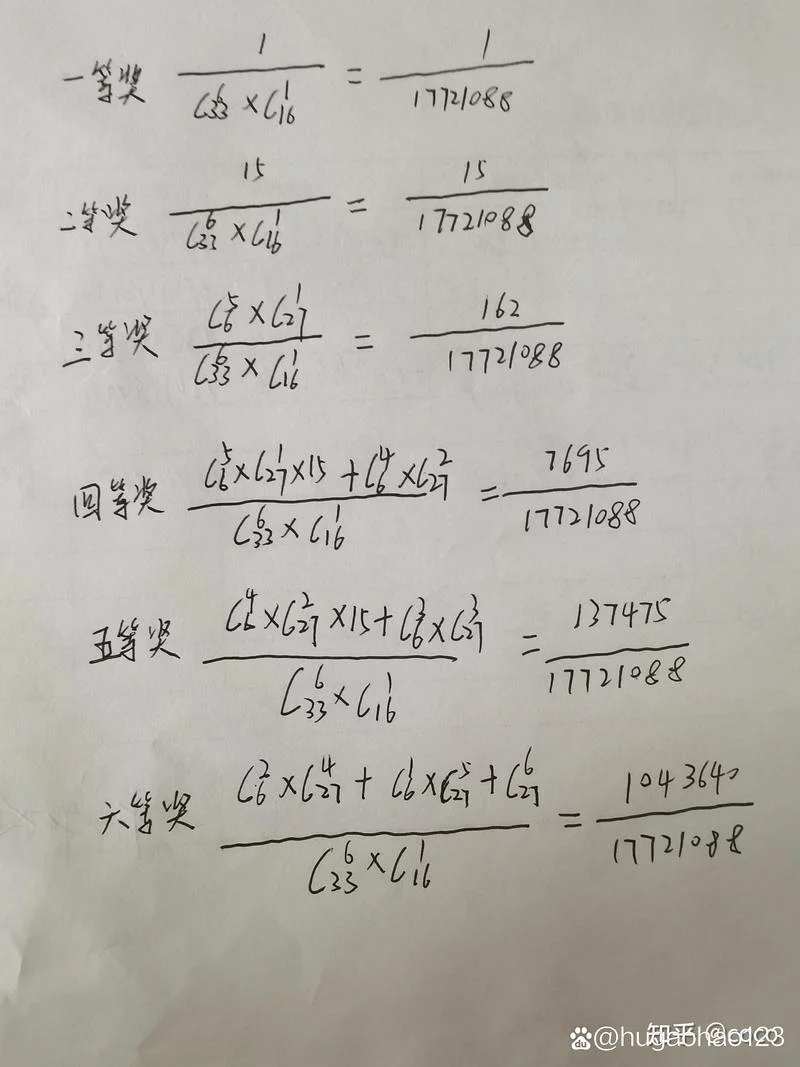 一等奖 1/(C₃₃⁶ × C₁₆¹) = 1/17721088
二等奖 15/(C₃₃⁶ × C₁₆¹) = 15/17721088
三等奖 (C₆⁵ × C₂₇¹)/(C₃₃⁶ × C₁₆¹) = 162/17721088
四等奖 (C₆⁵ × C₂₇¹ × 15 + C₆⁴ × C₂₇²)/(C₃₃⁶ × C₁₆¹) = 7695/17721088
五等奖 (C₆⁴ × C₂₇² × 15 + C₆³ × C₂₇³)/(C₃₃⁶ × C₁₆¹) = 137475/17721088
六等奖 (C₆² × C₂₇⁴ + C₆¹ × C₂₇⁵ + C₂₇⁶)/(C₃₃⁶ × C₁₆¹) = 1043640/17721088